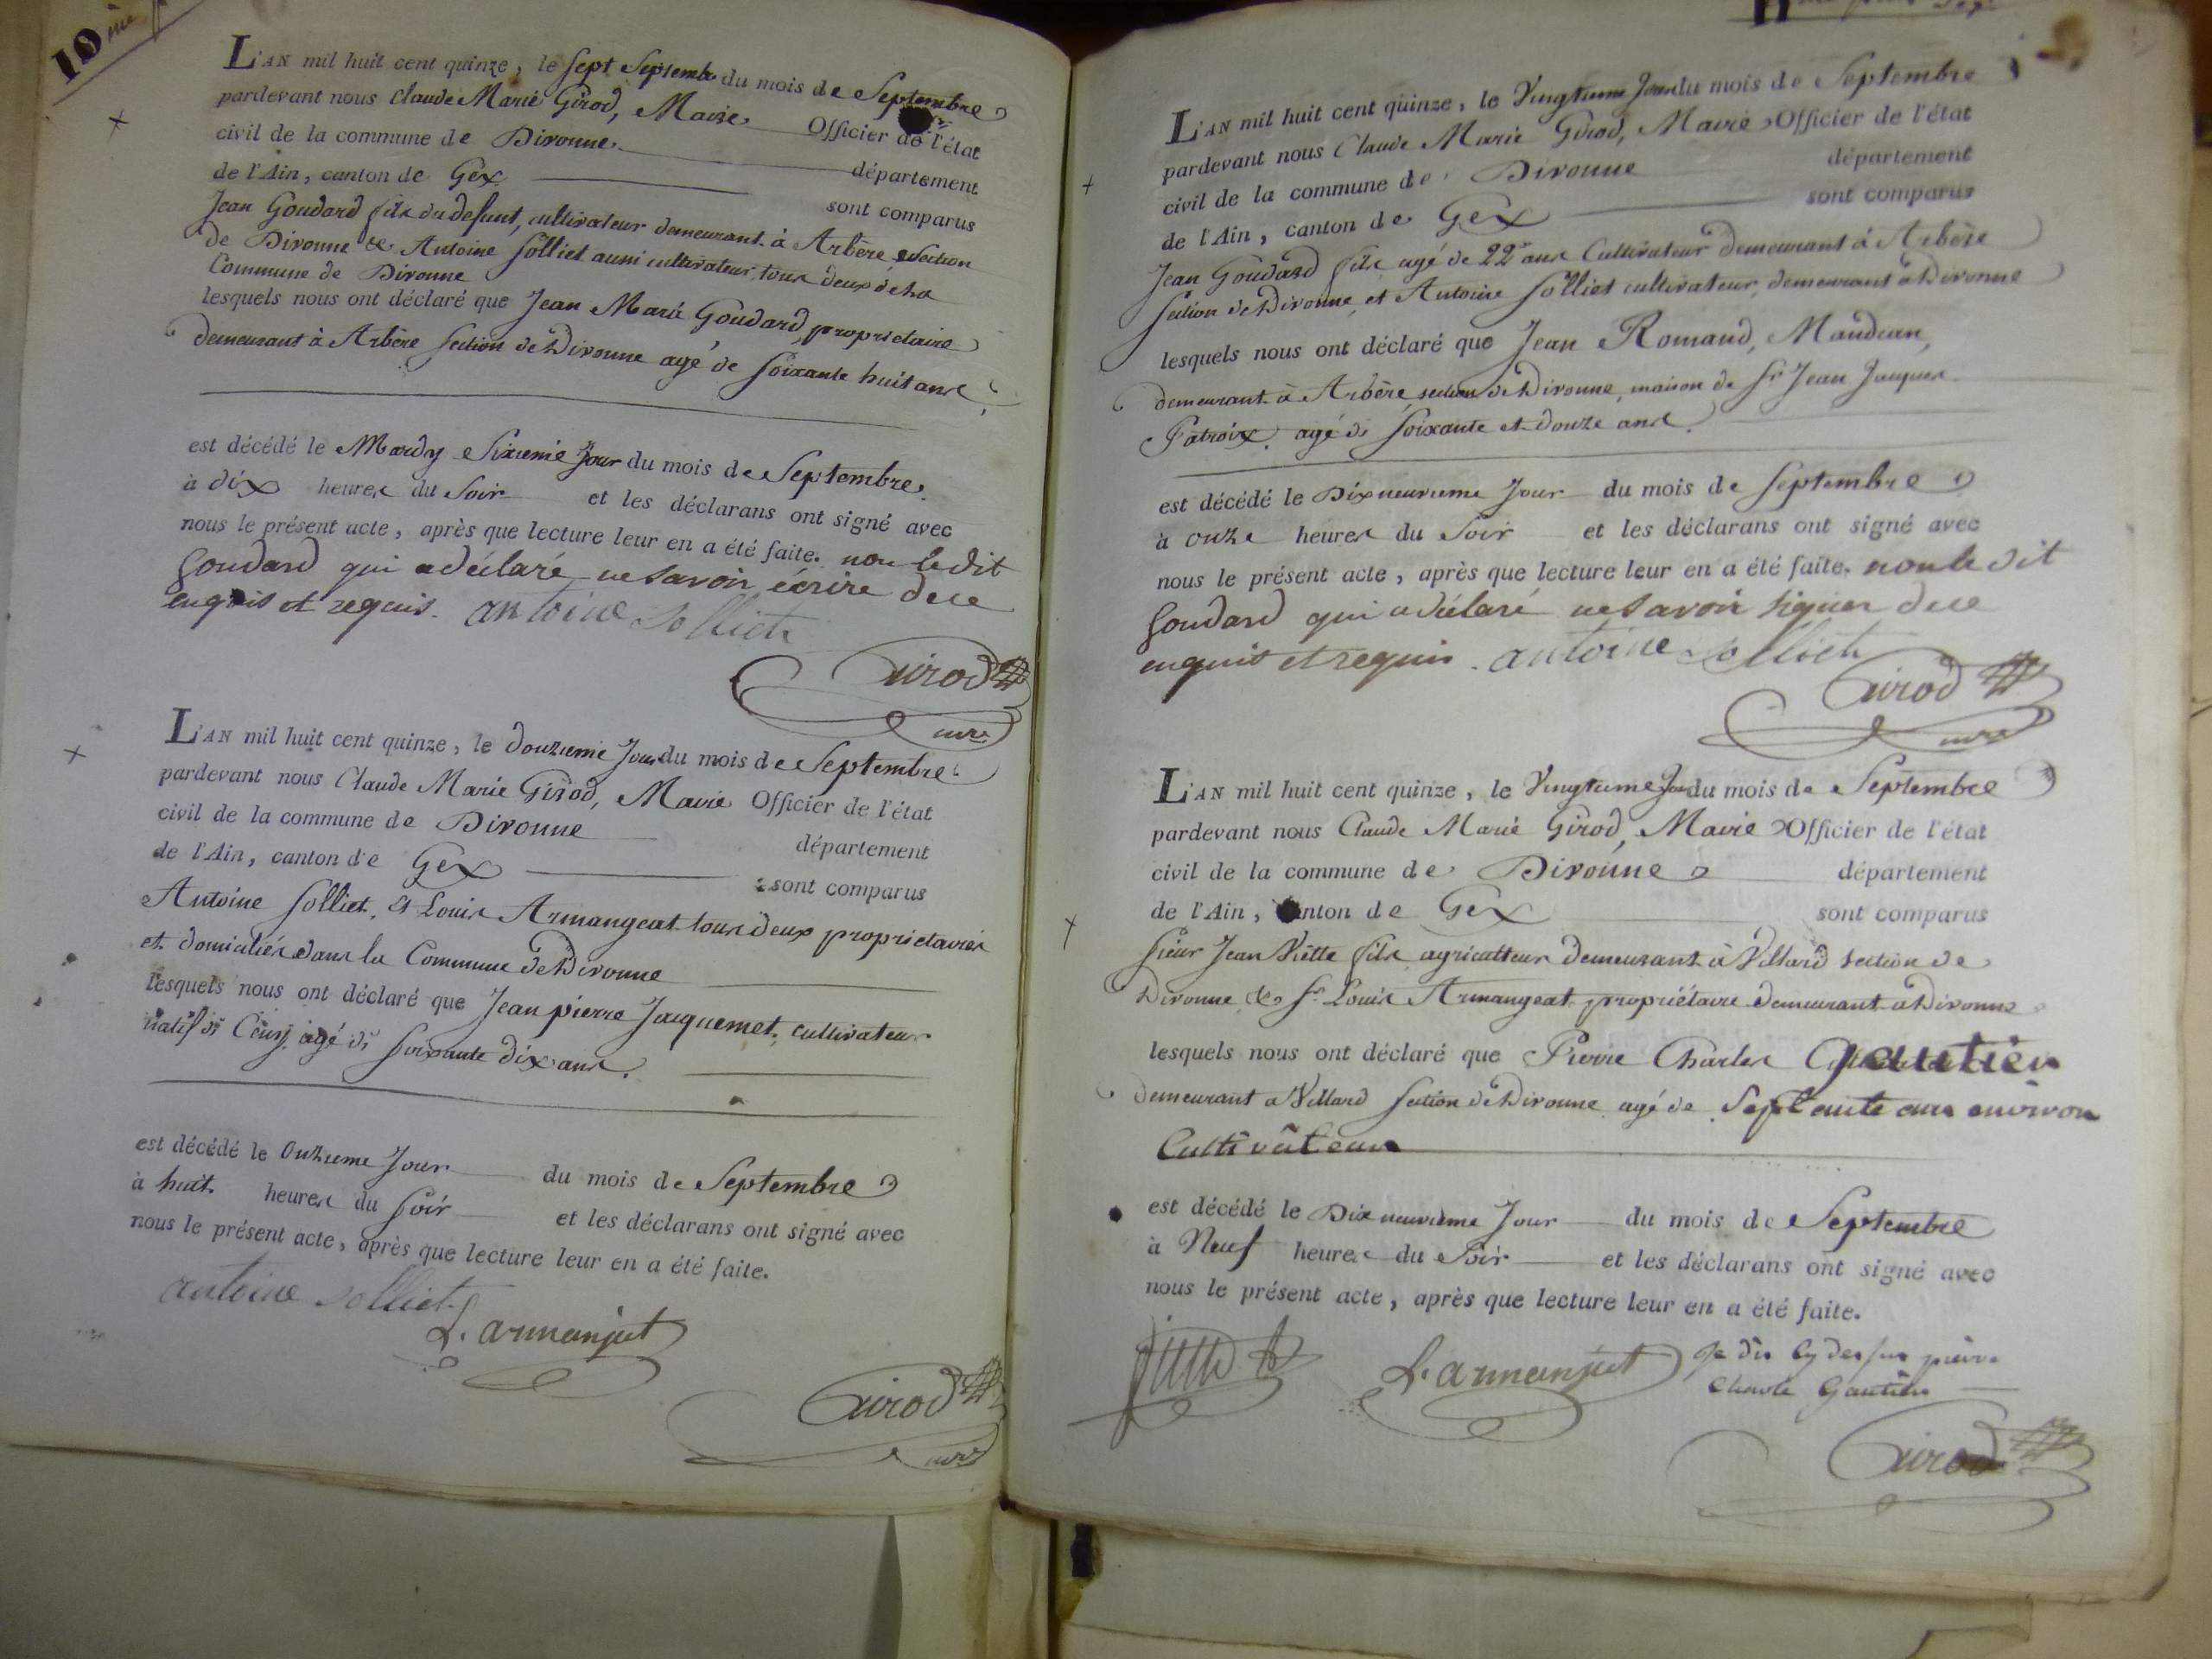 10ème
L'AN mil huit cent quinze, le sept Septembre du mois de Septembre
pardevant nous Claude Marie Girod, Maire Officier de l'état
civil de la commune de Divonne département
de l'Ain, canton de Gex sont comparus
Jean Goudard fils du defunt, cultivateur demeurant à Arbère Section
de Divonne & Antoine Solliet aussi cultivateur, tous deux de la
Commune de Divonne
lesquels nous ont déclaré que Jean Marie Goudard, proprietaire
demeurant à Arbère Section de Divonne agé de Soixante huit ans
est décédé le Mardy Sixieme Jour du mois de Septembre
à dix heures du Soir et les déclarans ont signé avec
nous le présent acte, après que lecture leur en a été faite. non ledit
Goudard qui a déclaré ne Savoir écrire de ce
enquis et requis. antoine solliet
Girod
mre
L'AN mil huit cent quinze, le douzieme Jour du mois de Septembre
pardevant nous Claude Marie Girod, Maire Officier de l'état
civil de la commune de Divonne département
de l'Ain, canton de Gex sont comparus
Antoine Solliet, & Louis Armangeat tous deux proprietaires
et domiciliés dans la Commune de Divonne
lesquels nous ont déclaré que Jean pierre Jacquemet, cultivateur
natif de agé de Soixante dix ans.
est décédé le Onzieme Jour du mois de Septembre
à huit heures du Soir et les déclarans ont signé avec
nous le présent acte, après que lecture leur en a été faite.
antoine solliet
L. armanjat
Girod
mre
L'AN mil huit cent quinze, le Vingtieme Jour du mois de Septembre
pardevant nous Claude Marie Girod, Maire Officier de l'état
civil de la commune de Divonne département
de l'Ain, canton de Gex sont comparus
Jean Goudard fils agé de 22 ans Cultivateur demeurant à Arbère
Section de Divonne, et Antoine Solliet cultivateur, demeurant à Divonne
lesquels nous ont déclaré que Jean Romand, Mandian,
demeurant à Arbère, section de Divonne, maison de Sr Jean Jaques
Patroix, agé de Soixante et douze ans.
est décédé le Dix neuvieme Jour du mois de Septembre
à onze heures du Soir et les déclarans ont signé avec
nous le présent acte, après que lecture leur en a été faite. non le dit
Goudard qui a déclaré ne Savoir Signer de ce
enquis et requis. antoine solliet
Girod
mre
L'AN mil huit cent quinze, le Vingtieme Jour du mois de Septembre
pardevant nous Claude Marie Girod, Maire Officier de l'état
civil de la commune de Divonne département
de l'Ain, canton de Gex sont comparus
Sieur Jean Viette fils agriculteur demeurant à Villard section de
Divonne, & Sr Louis Armangeat propriétaire demeurant à Divonne
lesquels nous ont déclaré que Pierre Charles gautier
demeurant à Villard Section de Divonne agé de Septante ans environ
Cultivateur
est décédé le Dix neuvieme Jour du mois de Septembre
à Neuf heures du Soir et les déclarans ont signé avec
nous le présent acte, après que lecture leur en a été faite.
L. armanjat Je dis cy dessus pierre
charle Gautier
Girod